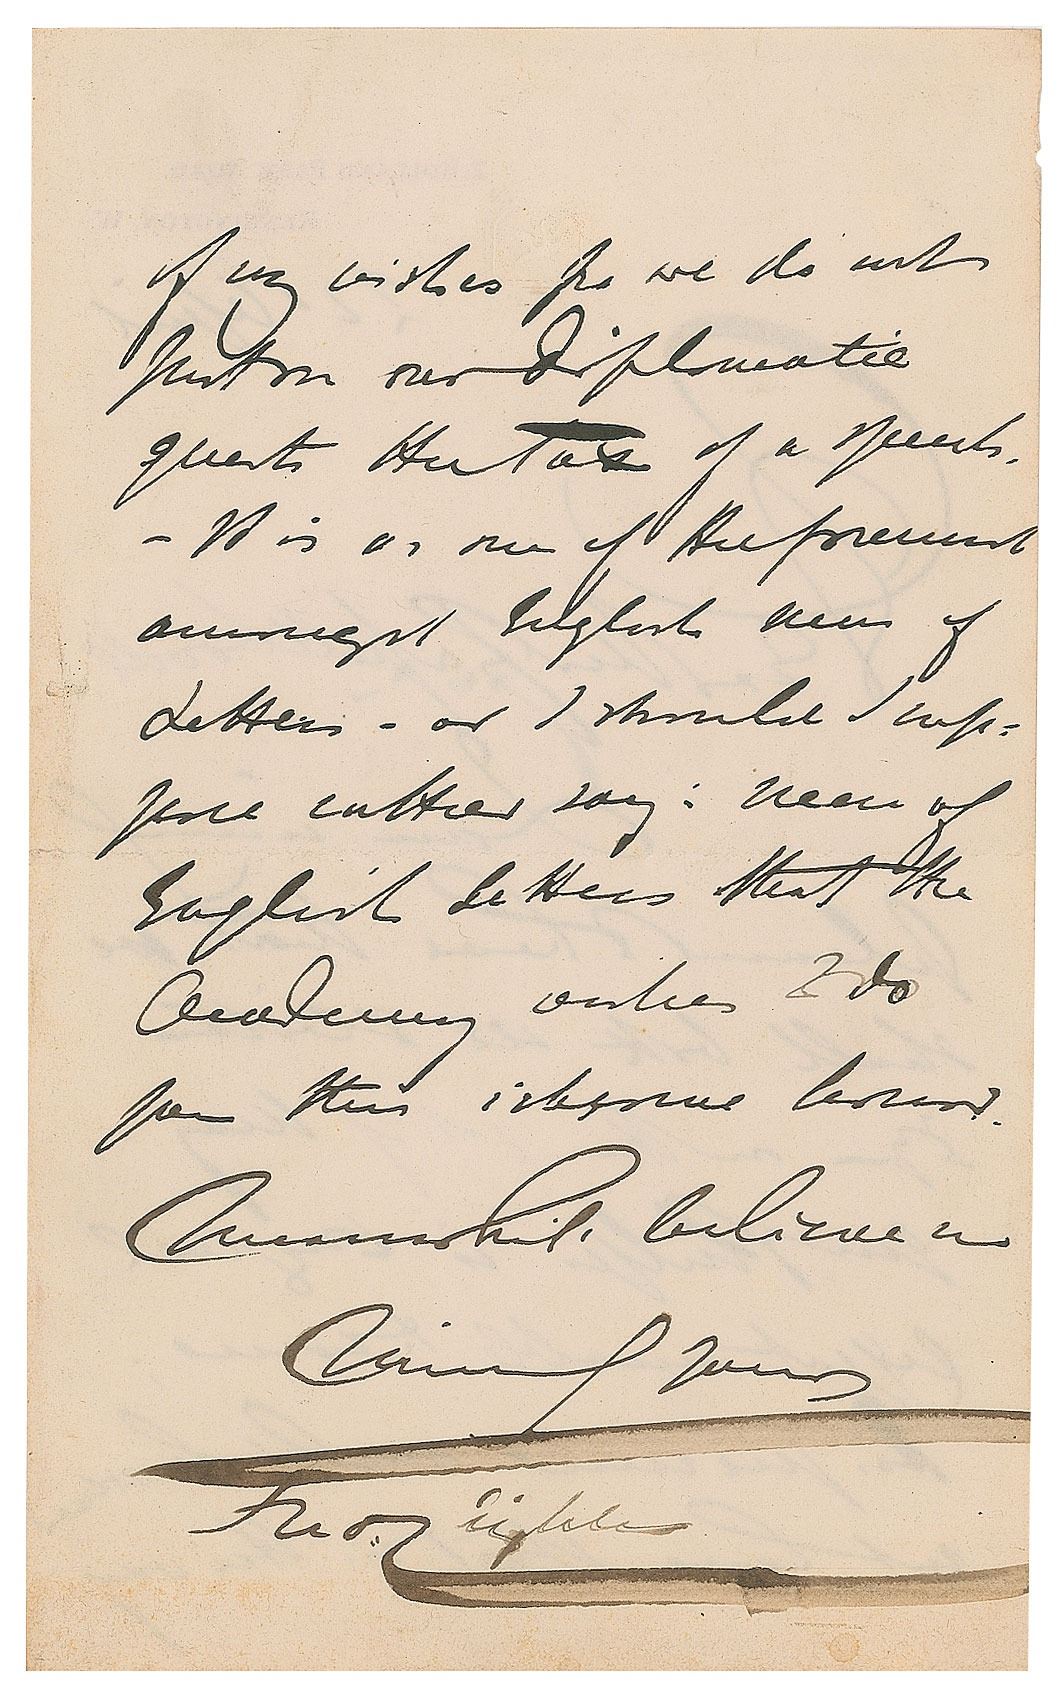 of my wishes for we do not
put on our Diplomatic
guests the Tax of a speech.
- It is as one of the foremost
amongst English men of
Letters - or I should I sup=
pose rather say: men of
English Letters that the
Academy wishes to do
you this welcome honor.
Meanwhile believe me
Sincerely yours
Fred Leighton